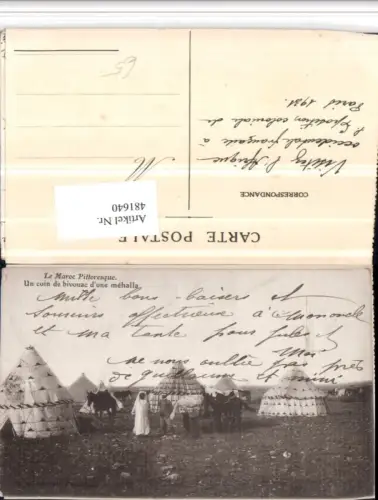 CARTE POSTALE
CORRESPONDANCE
Visitez l'Afrique
occidentale française à
l'Exposition coloniale de
Paris 1931.
M
55
Artikel Nr.
481640
Le Maroc Pittoresque.
Un coin de bivouac d'une méhalla.
Mille bons baisers et
souvenirs affectueux à
et ma tante pour Jules et
Moi
ne nous oublie pas près
de et mimi